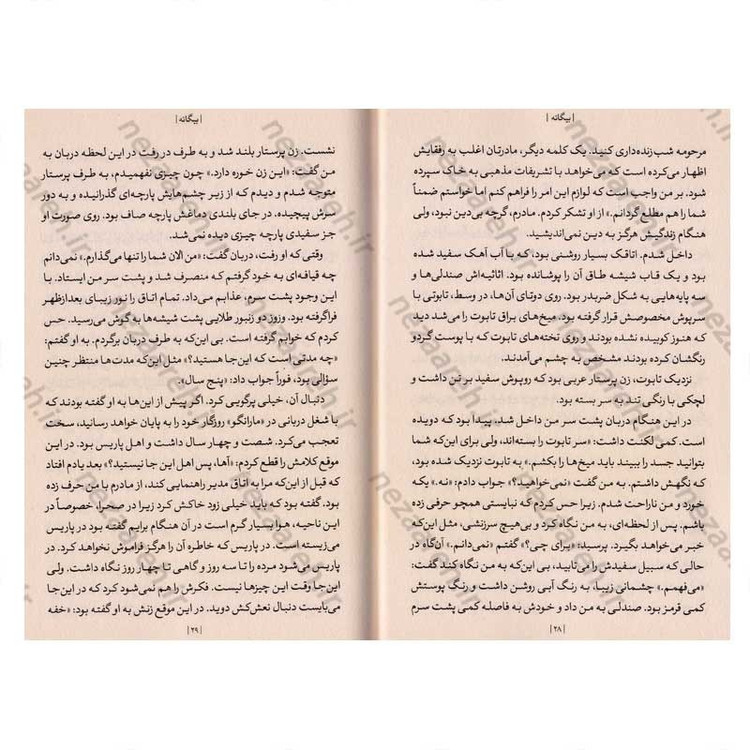 | بیگانه |
مرحومه شب‌زنده‌داری کنید. یک کلمه دیگر، مادرتان اغلب به رفقایش
اظهار می‌کرده است که می‌خواهد با تشریفات مذهبی به خاک سپرده
شود. بر من واجب است که لوازم این امر را فراهم کنم اما خواستم ضمناً
شما را هم مطلع گردانم.» از او تشکر کردم. مادرم، گرچه بی‌دین نبود، ولی
هنگام زندگیش هرگز به دین نمی‌اندیشید.
داخل شدم. اتاقک بسیار روشنی بود، که با آب آهک سفید شده
بود و یک قاب شیشه طاق آن را پوشانده بود. اثاثیه‌اش صندلی‌ها و
سه پایه‌هایی به شکل ضربدر بود. روی دوتای آن‌ها، در وسط، تابوتی با
سرپوش مخصوصش قرار گرفته بود. میخ‌های براق تابوت را می‌شد دید
که هنوز کوبیده نشده بودند و روی تخته‌های تابوت که با پوست گردو
رنگشان کرده بودند مشخص به چشم می‌آمدند.
نزدیک تابوت، زن پرستار عربی بود که روپوش سفید بر تن داشت و
لچکی با رنگی تند به سر بسته بود.
در این هنگام دربان پشت سر من داخل شد. پیدا بود که دویده
است. کمی لکنت داشت: «سر تابوت را بسته‌اند، ولی برای این‌که شما
بتوانید جسد را ببیند باید میخ‌ها را بکشم.» به تابوت نزدیک شده بود،
که نگهش داشتم. به من گفت: «نمی‌خواهید؟» جواب دادم: «نه.» یکه
خورد و من ناراحت شدم. زیرا حس کردم که نبایستی همچو حرفی زده
باشم. پس از لحظه‌ای، به من نگاه کرد و بی‌هیچ سرزنشی، مثل این‌که
خبر می‌خواهد بگیرد. پرسید: «برای چی؟» گفتم «نمی‌دانم.» آن‌گاه در
حالی که سبیل سفیدش را می‌تابید، بی این‌که به من نگاه کند گفت:
«می‌فهمم.» چشمانی زیبا، به رنگ آبی روشن داشت و رنگ پوستش
کمی قرمز بود. صندلی به من داد و خودش به فاصله کمی پشت سرم
| ۲۸ |
| بیگانه |
نشست. زن پرستار بلند شد و به طرف در رفت در این لحظه دربان به
من گفت: «این زن خوره دارد.» چون چیزی نفهمیدم، به طرف پرستار
متوجه شدم و دیدم که از زیر چشم‌هایش پارچه‌ای گذرانیده و به دور
سرش پیچیده. در جای بلندی دماغش پارچه صاف بود. روی صورت او
جز سفیدی پارچه چیزی دیده نمی‌شد.
وقتی که او رفت، دربان گفت: «من الان شما را تنها می‌گذارم.» نمی‌دانم
چه قیافه‌ای به خود گرفتم که منصرف شد و پشت سر من ایستاد. با
این وجود پشت سرم، عذابم می‌داد. تمام اتاق را نور زیبای بعدازظهر
فراگرفته بود. وزوز دو زنبور طلایی پشت شیشه‌ها به گوش می‌رسید. حس
کردم که خوابم گرفته است. بی این‌که به طرف دربان برگردم. به او گفتم:
«چه مدتی است که این‌جا هستید؟» مثل این‌که مدت‌ها منتظر چنین
سؤالی بود، فوراً جواب داد: «پنج سال».
دنبال آن، خیلی پرگویی کرد. اگر پیش از این‌ها به او گفته بودند که
با شغل دربانی در «مارانگو» روزگار خود را به پایان خواهد رسانید، سخت
تعجب می‌کرد. شصت و چهار سال داشت و اهل پاریس بود. در این
موقع کلامش را قطع کردم: «آها، پس اهل این جا نیستید؟» بعد یادم افتاد
که قبل از این‌که مرا به اتاق مدیر راهنمایی کند، از مادرم با من حرف زده
بود. گفته بود که باید خیلی زود خاکش کرد زیرا در صحرا، خصوصاً در
این ناحیه، هوا بسیار گرم است در آن هنگام برایم گفته بود در پاریس
می‌زیسته است. در پاریس که خاطره آن را هرگز فراموش نخواهد کرد. در
پاریس می‌شود مرده را تا سه روز و گاهی تا چهار روز نگاه داشت. ولی
این‌جا وقت این چیزها نیست. فکرش را هم نمی‌شود کرد که در این‌جا
می‌بایست دنبال نعش‌کش دوید. در این موقع زنش به او گفته بود: «خفه
| ۲۹ |
nezaareh.ir